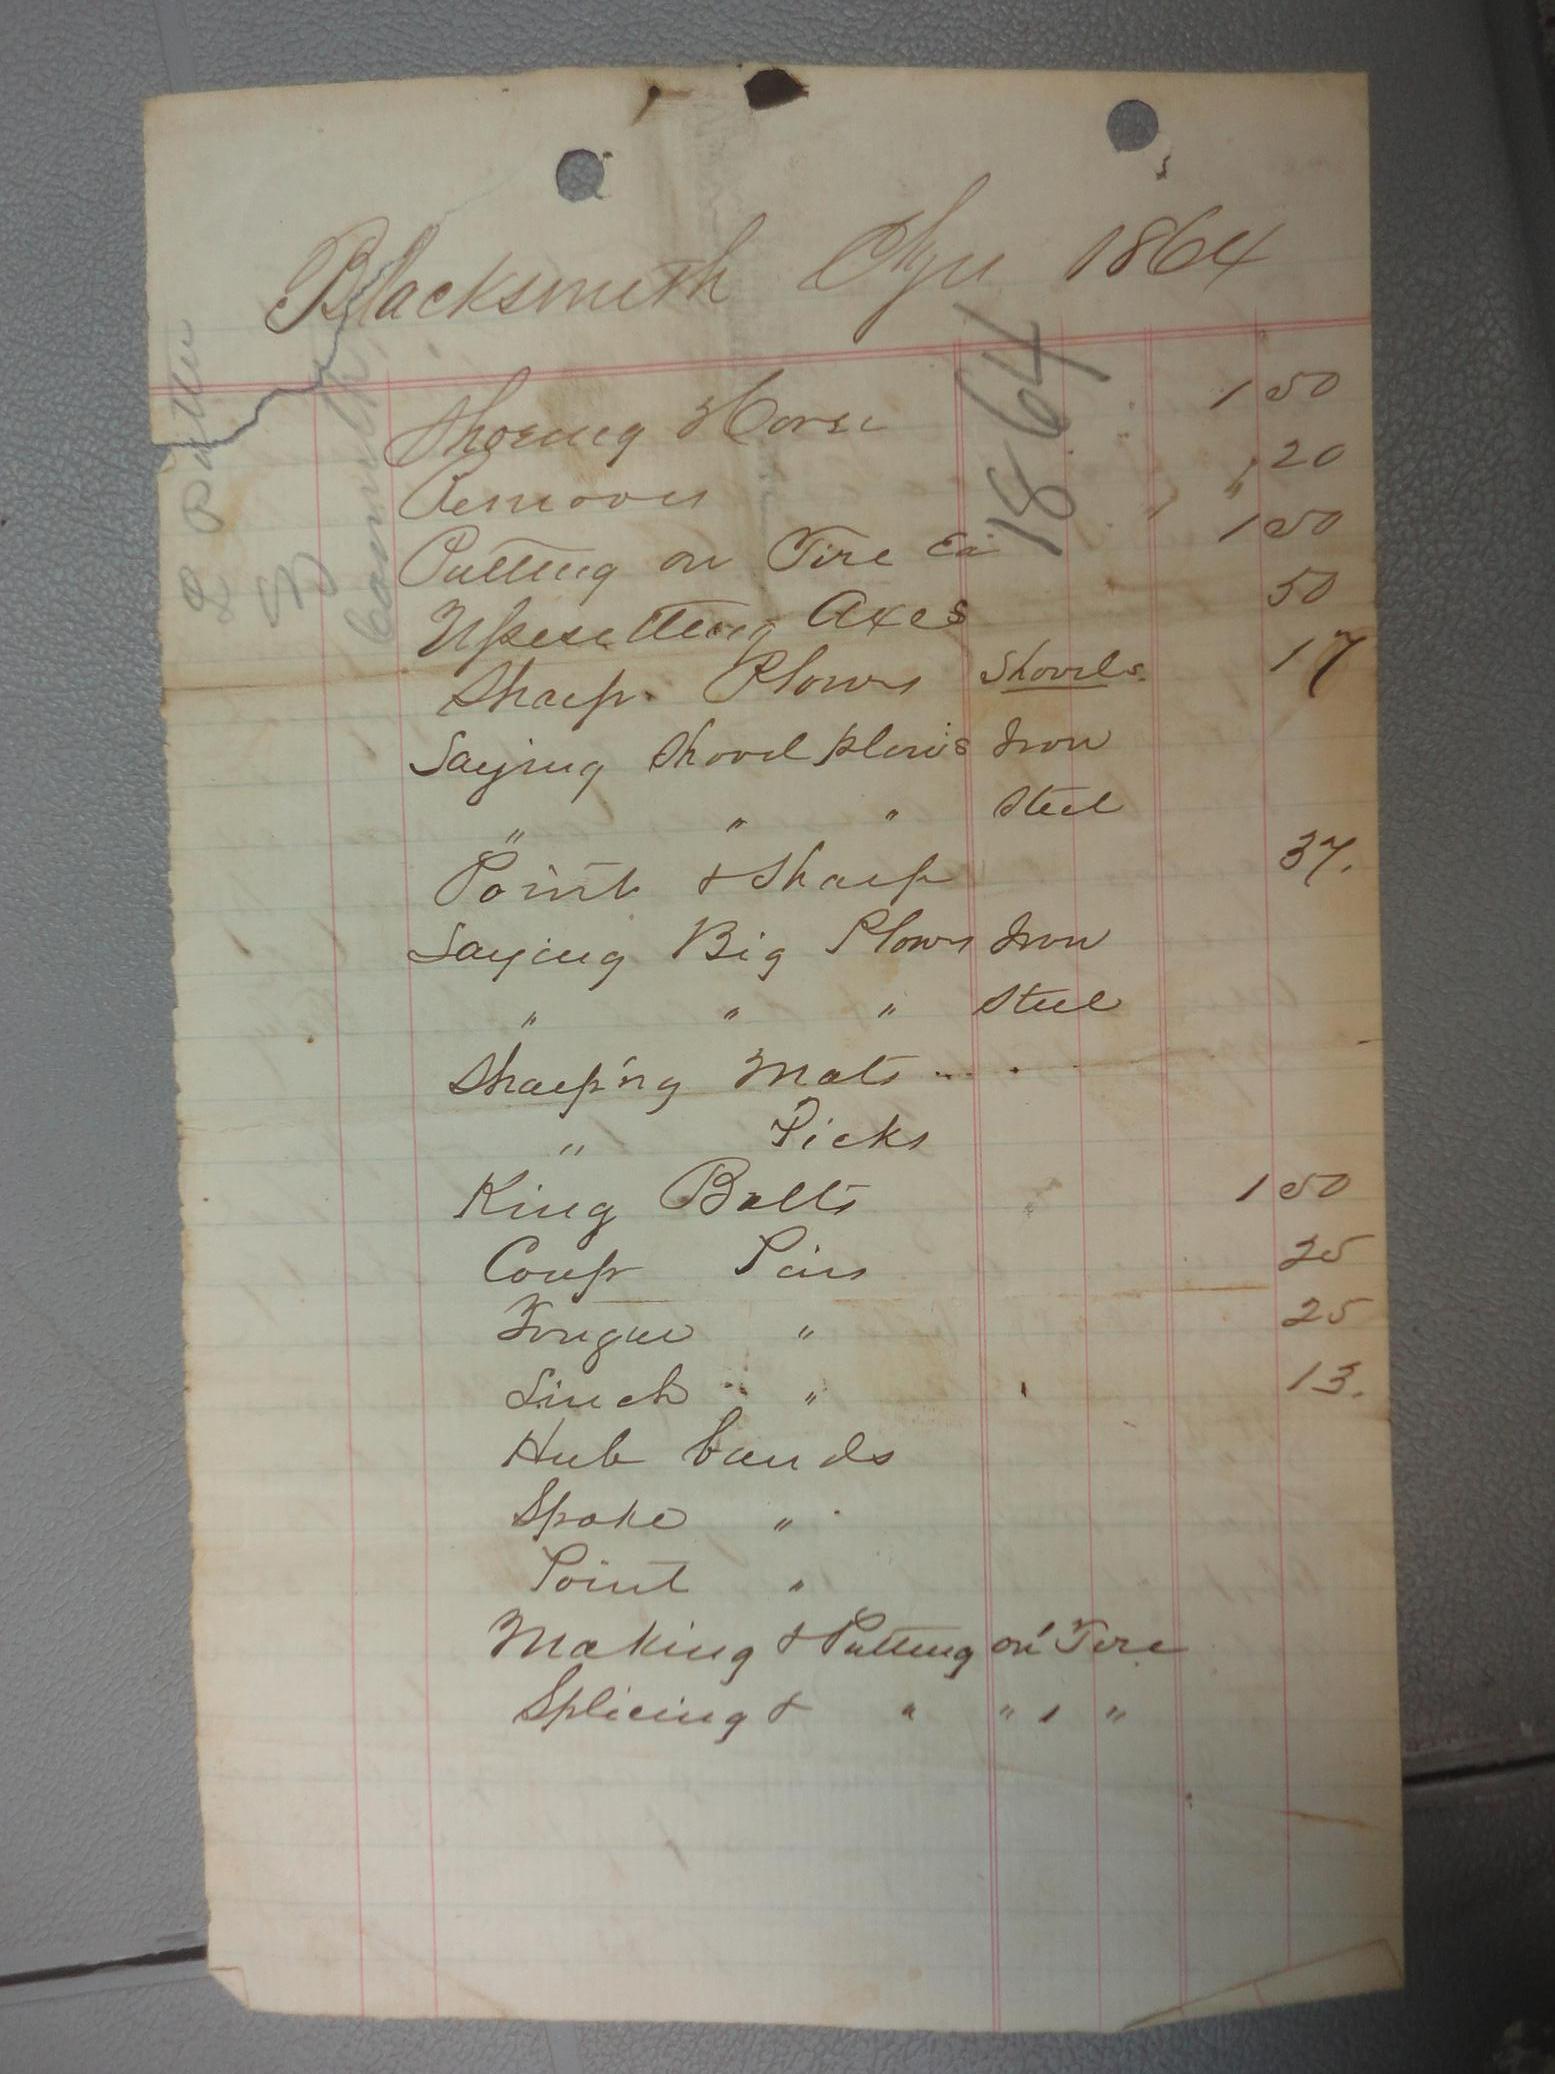 Blacksmith 1864
1864
Shoeing Horse 1 50
Removes " " 20
Putting on Tire Ea 1 50
Upsetting Axes 50
Sharp. Plows Shovels. 17
Laying Shovel plows Iron
" " " Steel
Point & Sharp 37.
Laying Big Plows Iron
" " " Steel
Sharp'ng Mats
" Picks
King Bolts 1 50
Coup Pins 25
Tongue " 25
Linch " 13.
Hub bands
Spoke "
Point "
Making & Putting on Tire
Splicing & " " " "